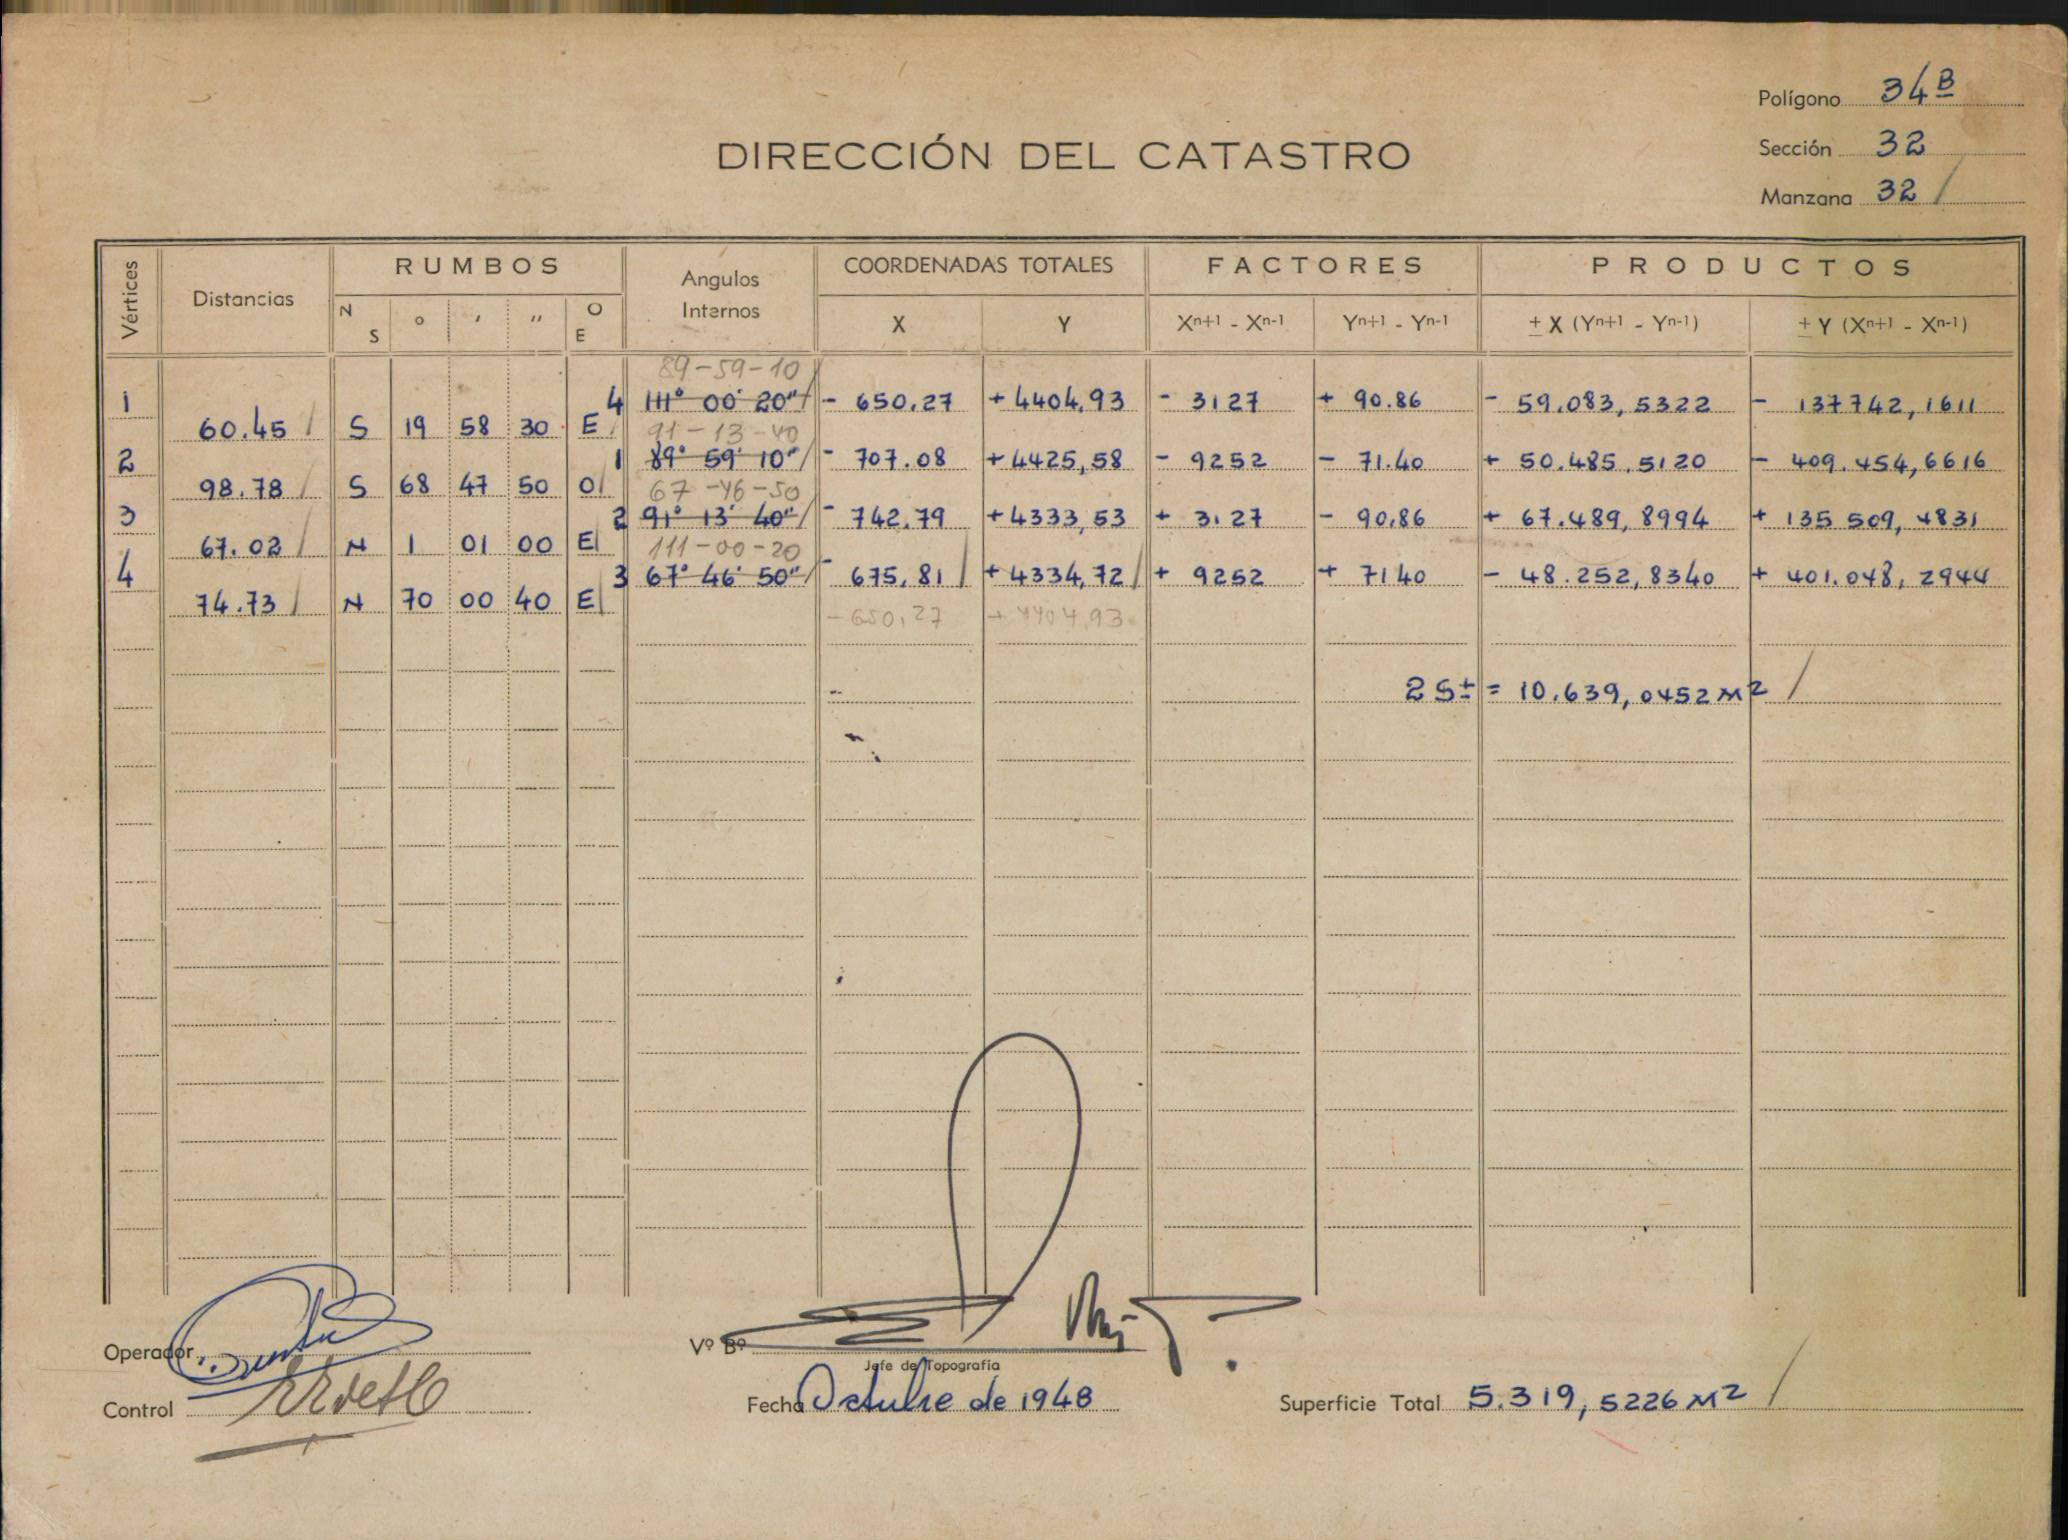 Polígono 34B
Sección 32
Manzana 32 /
DIRECCIÓN DEL CATASTRO
Vértices Distancias RUMBOS Angulos Internos COORDENADAS TOTALES FACTORES PRODUCTOS
N S ° ' '' O E X Y Xn+1 - Xn-1 Yn+1 - Yn-1 ± X (Yn+1 - Yn-1) ± Y (Xn+1 - Xn-1)
89-59-10
1 4 111° 00' 20" - 650,27 + 4404,93 - 3127 + 90.86 - 59.083,5322 - 137742,1611
60.45 S 19 58 30 E 91-13-40
2 1 89° 59' 10" - 707.08 + 4425,58 - 9252 - 71.40 + 50.485.5120 - 409.454,6616
98.78 S 68 47 50 O 67-46-50
3 2 91° 13' 40" - 742,79 + 4333,53 + 3127 - 90,86 + 67.489,8994 + 135 509,4831
67.02 N 1 01 00 E 111-00-20
4 3 67° 46' 50" - 675,81 + 4334,72 + 9252 + 7140 - 48.252,8340 + 401.048,2944
74.73 N 70 00 40 E - 650,27 + 4404,93
2 S± = 10.639,0452 M2 /
Operador
Vº Bº
Jefe de Topografía
Control
Fecha Octubre de 1948
Superficie Total 5.319,5226 M2 /